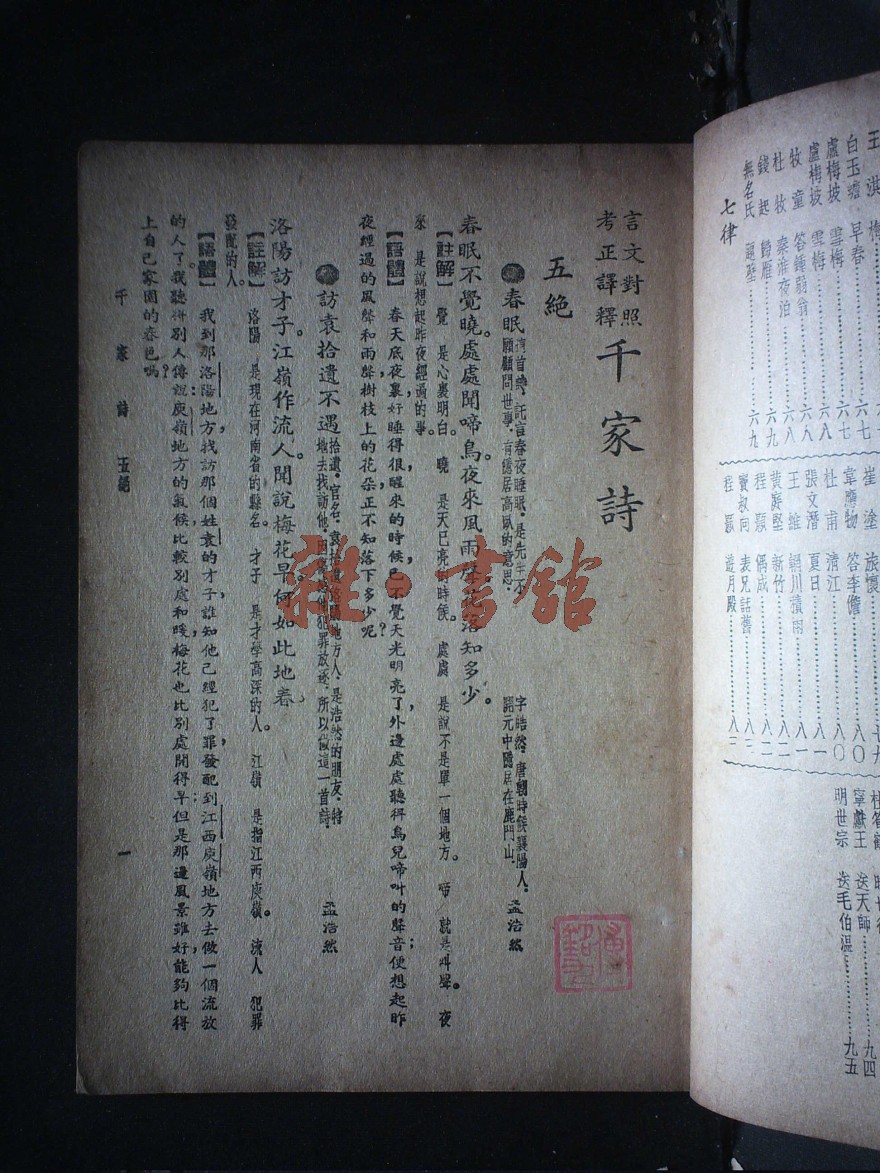 言文對照
考正譯釋
千家詩
五絕
春眠
這首詩，託言春夜睡眠，是先生不
願顧問世事，有隱居高臥的意思。
字皓然，唐朝時候襄陽人，
諾元中隱居在鹿門山。
孟浩然
春眠不覺曉。處處聞啼鳥。夜來風雨聲。花落知多少。
【註解】 覺 是心裏明白。 曉 是天已亮的時候。 處處 是說不是單一個地方。 啼 就是叫聲。 夜
來 是說想起昨夜經過的事。
【語體】 春天底夜裏好睡得很，醒來的時候已不覺天光明亮了，外邊處處聽得鳥兒啼叫的聲音；便想起昨
夜經過的風聲和雨聲，樹枝上的花朵正不知落下多少呢？
訪袁拾遺不遇
拾遺，官名，袁
地方人，是浩然的朋友，特
地去找訪他，因
犯罪放逐，所以做這一首詩。
孟浩然
洛陽訪才子。江嶺作流人。聞說梅花早。何如此地春。
【註解】 洛陽 是現在河南省的縣名。 才子 是才學高深的人。 江嶺 是指江西庾嶺。 流人 犯罪
發配的人。
【語體】 我到那洛陽地方，找訪那個姓袁的才子，誰知他已經犯了罪，發配到江西庾嶺地方去做一個流放
的人了。我聽得別人傳說：庾嶺地方的氣候，比較別處和暖，梅花也比別處開得早；但是那邊風景雖好，能夠比得
上自己家園的春色嗎？
千家詩 五絕
一
雜·書館
王淇 梅
白玉蟾 早春 六七
盧梅坡 雪梅 六七
盧梅坡 雪梅 六八
牧童 答鍾弱翁 六八
杜牧 秦淮夜泊 六八
錢起 歸雁 六九
無名氏 題壁 六九
七律
崔塗 旅懷 七九
韋應物 答李儋 八〇
杜甫 清江 八〇
張文潛 夏日 八一
王維 輞川積雨 八一
黃庭堅 新竹 八二
程顥 偶成 八二
竇叔向 表兄話舊 八三
程顥 遊月殿 八三
寧獻王 送天師 九四
明世宗 送毛伯溫 九五